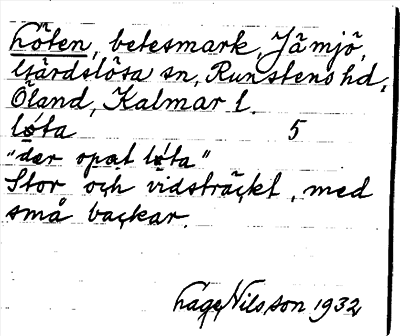 Löten, betesmark, Jämjö,
Gärdslösa sn, Runstens hd,
Öland, Kalmar l.
lơta 5
"dar opat lơta"
Stor och vidsträckt, med
små backar.
Håge Nilsson 1932